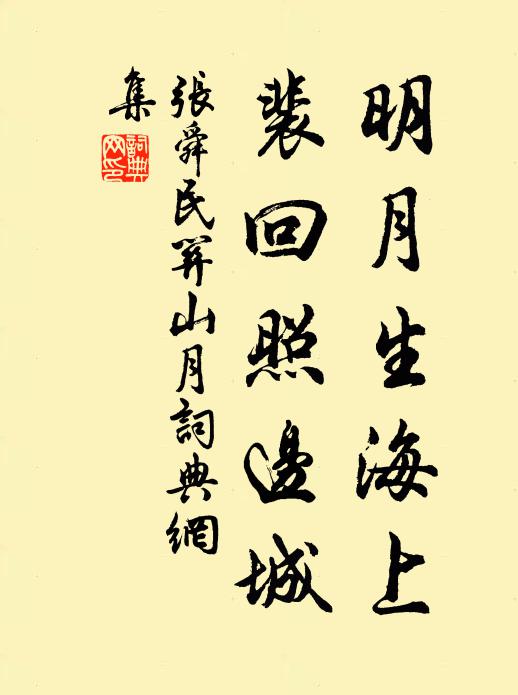 明月生海上
裴回照邊城
張舜民關山月詞典網
集
詞典
网印